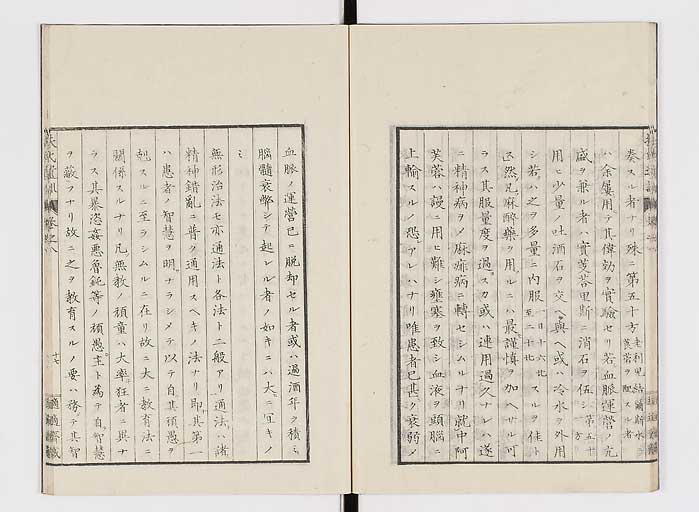 奏スル者ナリ殊ニ第五十方老利里結爾斯水ニ莨菪ヲ配スル者
ハ余屢用テ其偉効ヲ實驗セリ若血脈運營ノ亢
盛ヲ兼ル者ハ實芰荅里斯ニ消石ヲ伍シ第五十方
用ヒ少量ノ吐酒石ヲ交ヘ與ヘ或ハ冷水ヲ外用
シ若ハ之ヲ多量ニ内服一日十六北至二十北スルヲ佳ト
ス然凡麻醉藥ヲ用ルニハ最謹慎ヲ加ヘサル可
ラス其服量度ヲ過スカ或ハ連用過久ナレハ遂
ニ精神病ヲノ麻痲病ニ轉セシムルナリ就中阿
芙蓉ハ謾ニ用ヒ難シ壅塞ヲ致シ血液ヲ頭腦ニ
上輸スルノ恐アレハナリ唯患者已甚ク衰弱ノ
血脈ノ運營已ニ脱却セル者或ハ過酒年ヲ積ミ
腦髓衰弊シテ起レル者ノ如キニハ大ニ宜キノ
ミ
無形治法モ亦通法ト各法ト二般アリ通法ハ諸
精神錯亂ニ普ク通用スヘキノ法ナリ即其第一
ハ患者ノ智慧ヲ明ナラシメテ以テ自其頑愚ヲ
尅スルニ至ラシムルニ在リ故ニ大ニ教育法ニ
關係スルナリ凡無教ノ頑童ハ大率狂者ニ異ナ
ラス其暴恣姦悪魯鈍等ノ頑愚主ト為テ自智慧
ヲ蔽フナリ故ニ之ヲ教育スルノ要ハ務テ其智
適適齋藏